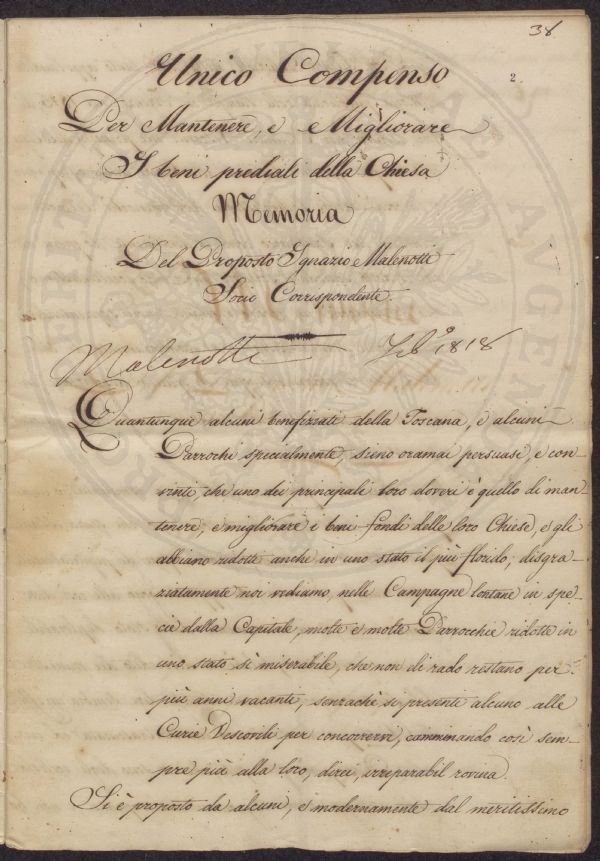 38
2
Unico Compenso
Per Mantenere, e Migliorare
I beni prediali della Chiesa
Memoria
Del Proposto Ignazio Malenotti
Socio Corrispondente.
Malenotti Feb.º 1818
Quantunque alcuni benefiziati della Toscana, e alcuni
Parrochi specialmente, sieno oramai persuasi, e con-
vinti che uno dei principali loro doveri è quello di man-
tenere, e migliorare i beni fondi delle loro Chiese, e gli
abbiano ridotte anche in uno stato il più florido; disgra-
ziatamente noi vediamo, nelle Campagne lontane in spe-
cie dalla Capitale, molte e molte Parrocchie ridotte in
uno stato sì miserabile, che non di rado restano per
più anni vacante, senzachè si presenti alcuno alle
Curie Vescovili per concorrervi, camminando così sem-
pre più alla loro, direi, irreparabil rovina.
Si è proposto da alcuni, e modernamente dal meritissimo